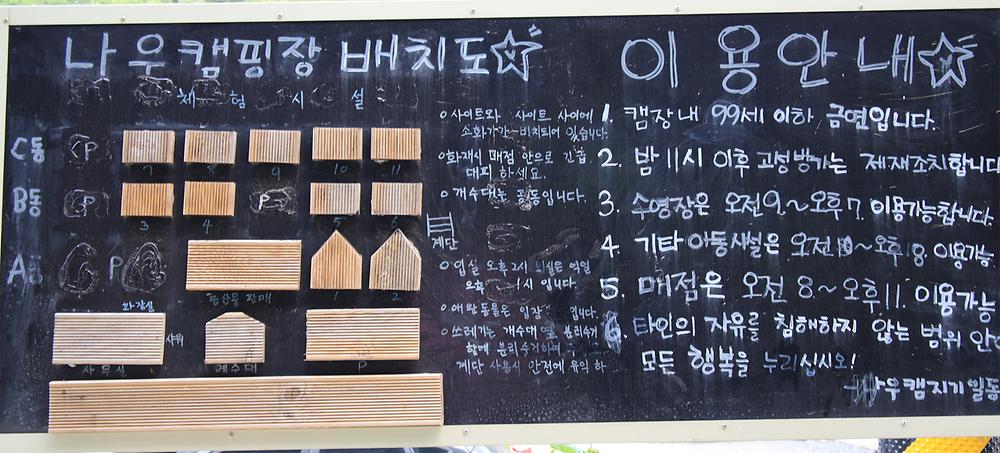 나우캠핑장 배치도☆
체험 시설
C동 P
7 8 9 10 11
B동 P P
3 4 5 6
A동 P
1 2
화장실
샤워
사무실 개수대 P
계단
o 사이트와 사이트 사이에
소화기가 비치되어 있습니다.
o 화재시 매점 안으로 긴급
대피 하세요.
o 개수대는 공동입니다.
o 입실 오후 2시 퇴실은 익일
시 입니다.
o 애완동물은 입장
o 쓰레기는 개수대 옆 분리수거
함에 분리수거하여
계단 사용시 안전에 유의 하
이용안내☆
1. 캠장내 99세 이하 금연입니다.
2. 밤 11시 이후 고성방가는 제재조치합니다
3. 수영장은 오전 9~오후 7. 이용가능합니다.
4. 기타 아동시설은 오전 10~오후 8. 이용가능
5. 매점은 오전 8~오후 11. 이용가능
6. 타인의 자유를 침해하지 않는 범위 안
모든 행복을 누리십시오!
나우캠지기 일동